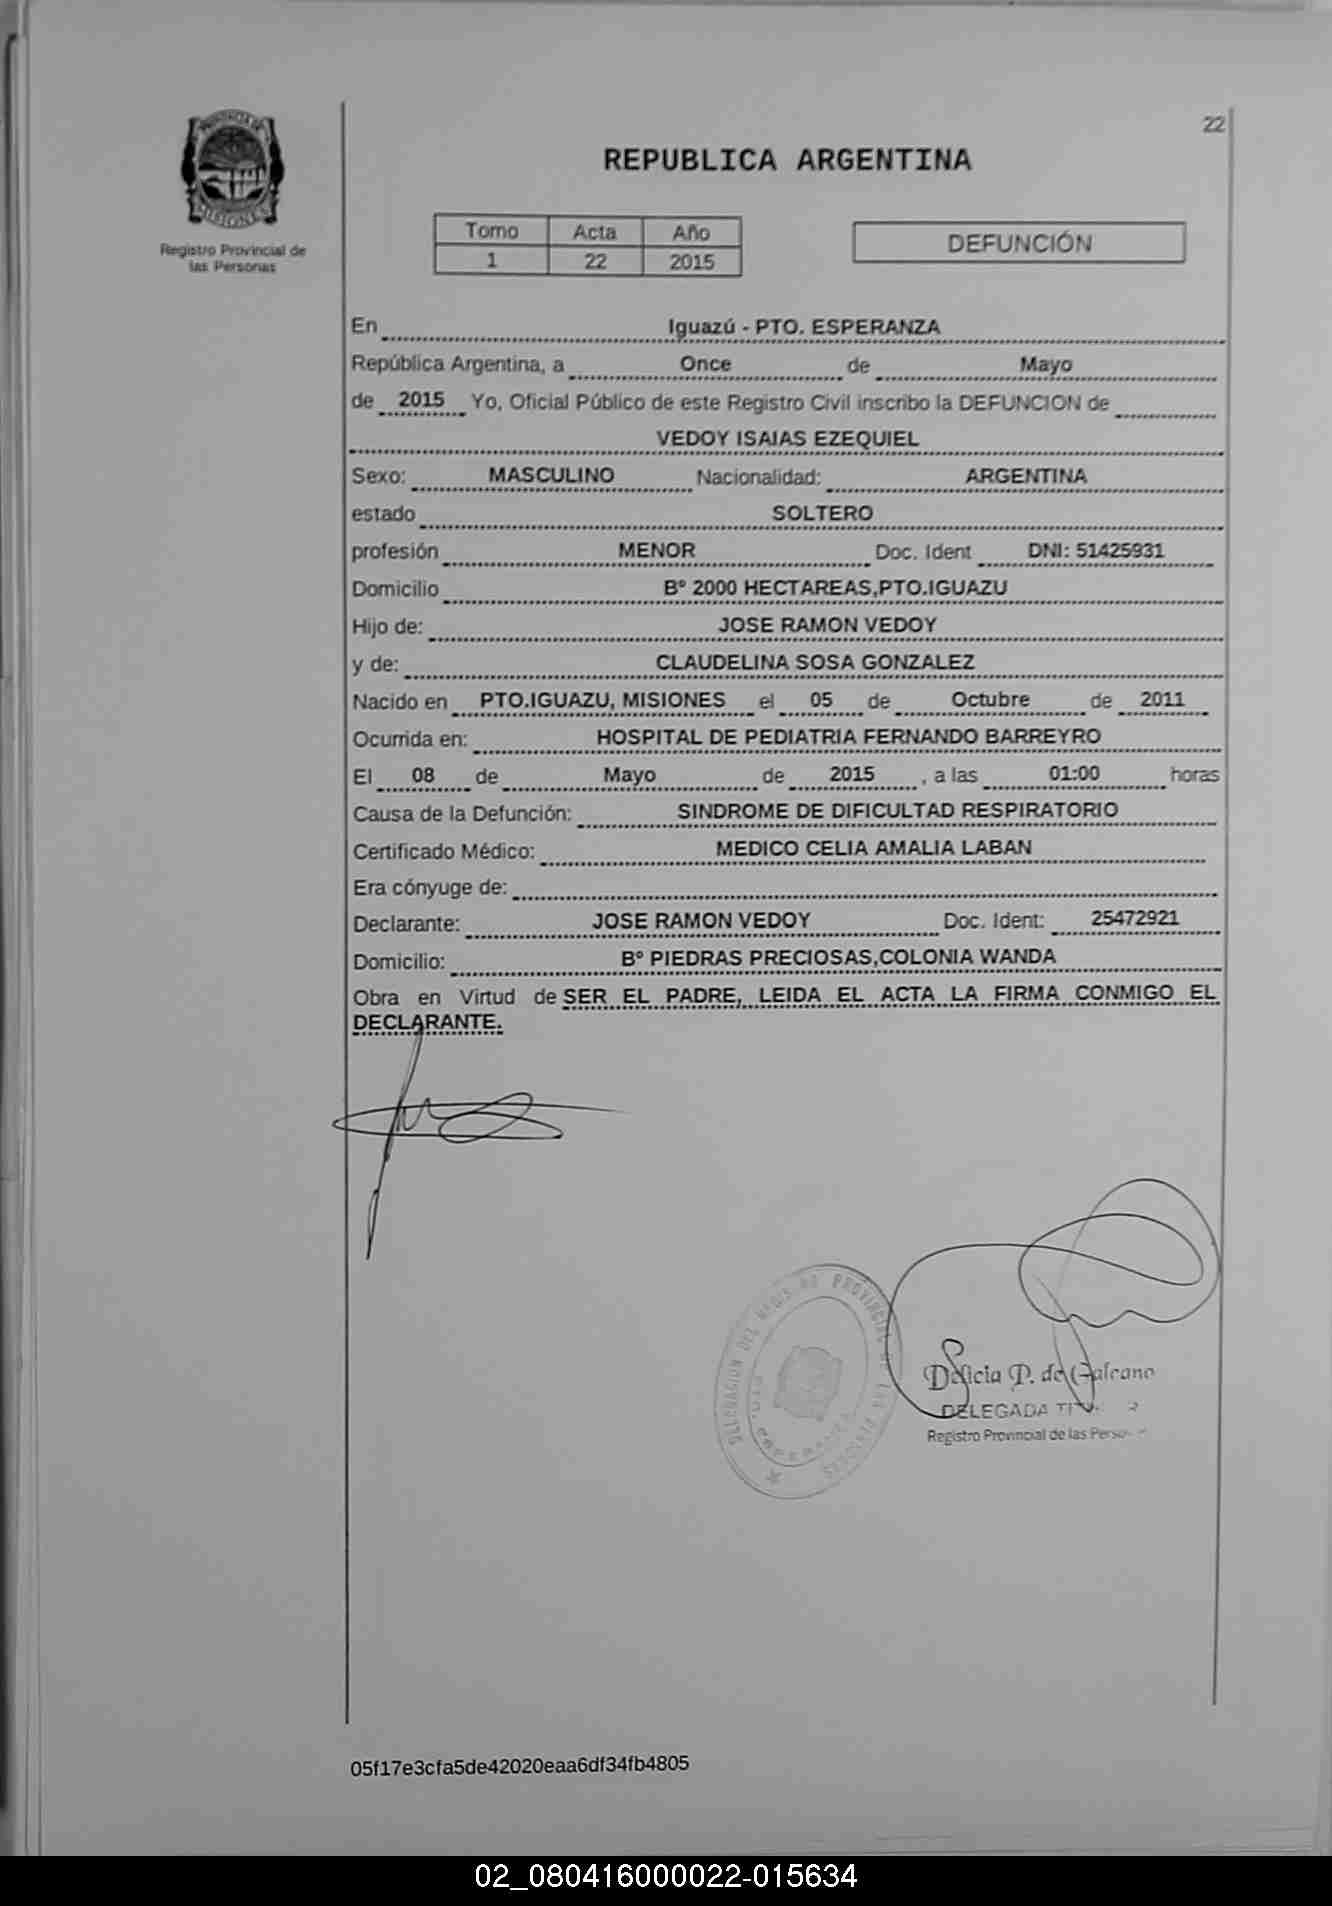 22
REPUBLICA ARGENTINA
PROVINCIA DE
MISIONES
Registro Provincial de
las Personas
Tomo Acta Año
1 22 2015
DEFUNCIÓN
En Iguazú - PTO. ESPERANZA
República Argentina, a Once de Mayo
de 2015 Yo, Oficial Público de este Registro Civil inscribo la DEFUNCION de
VEDOY ISAIAS EZEQUIEL
Sexo: MASCULINO Nacionalidad: ARGENTINA
estado SOLTERO
profesión MENOR Doc. Ident DNI: 51425931
Domicilio B° 2000 HECTAREAS,PTO.IGUAZU
Hijo de: JOSE RAMON VEDOY
y de: CLAUDELINA SOSA GONZALEZ
Nacido en PTO.IGUAZU, MISIONES el 05 de Octubre de 2011
Ocurrida en: HOSPITAL DE PEDIATRIA FERNANDO BARREYRO
El 08 de Mayo de 2015 , a las 01:00 horas
Causa de la Defunción: SINDROME DE DIFICULTAD RESPIRATORIO
Certificado Médico: MEDICO CELIA AMALIA LABAN
Era cónyuge de:
Declarante: JOSE RAMON VEDOY Doc. Ident: 25472921
Domicilio: B° PIEDRAS PRECIOSAS,COLONIA WANDA
Obra en Virtud de SER EL PADRE, LEIDA EL ACTA LA FIRMA CONMIGO EL
DECLARANTE.
DELEGACION DEL PROVINCIAL DE LAS PERSONAS
Delicia P. de Galeano
DELEGADA
Registro Provincial de las
05f17e3cfa5de42020eaa6df34fb4805
02_080416000022-015634